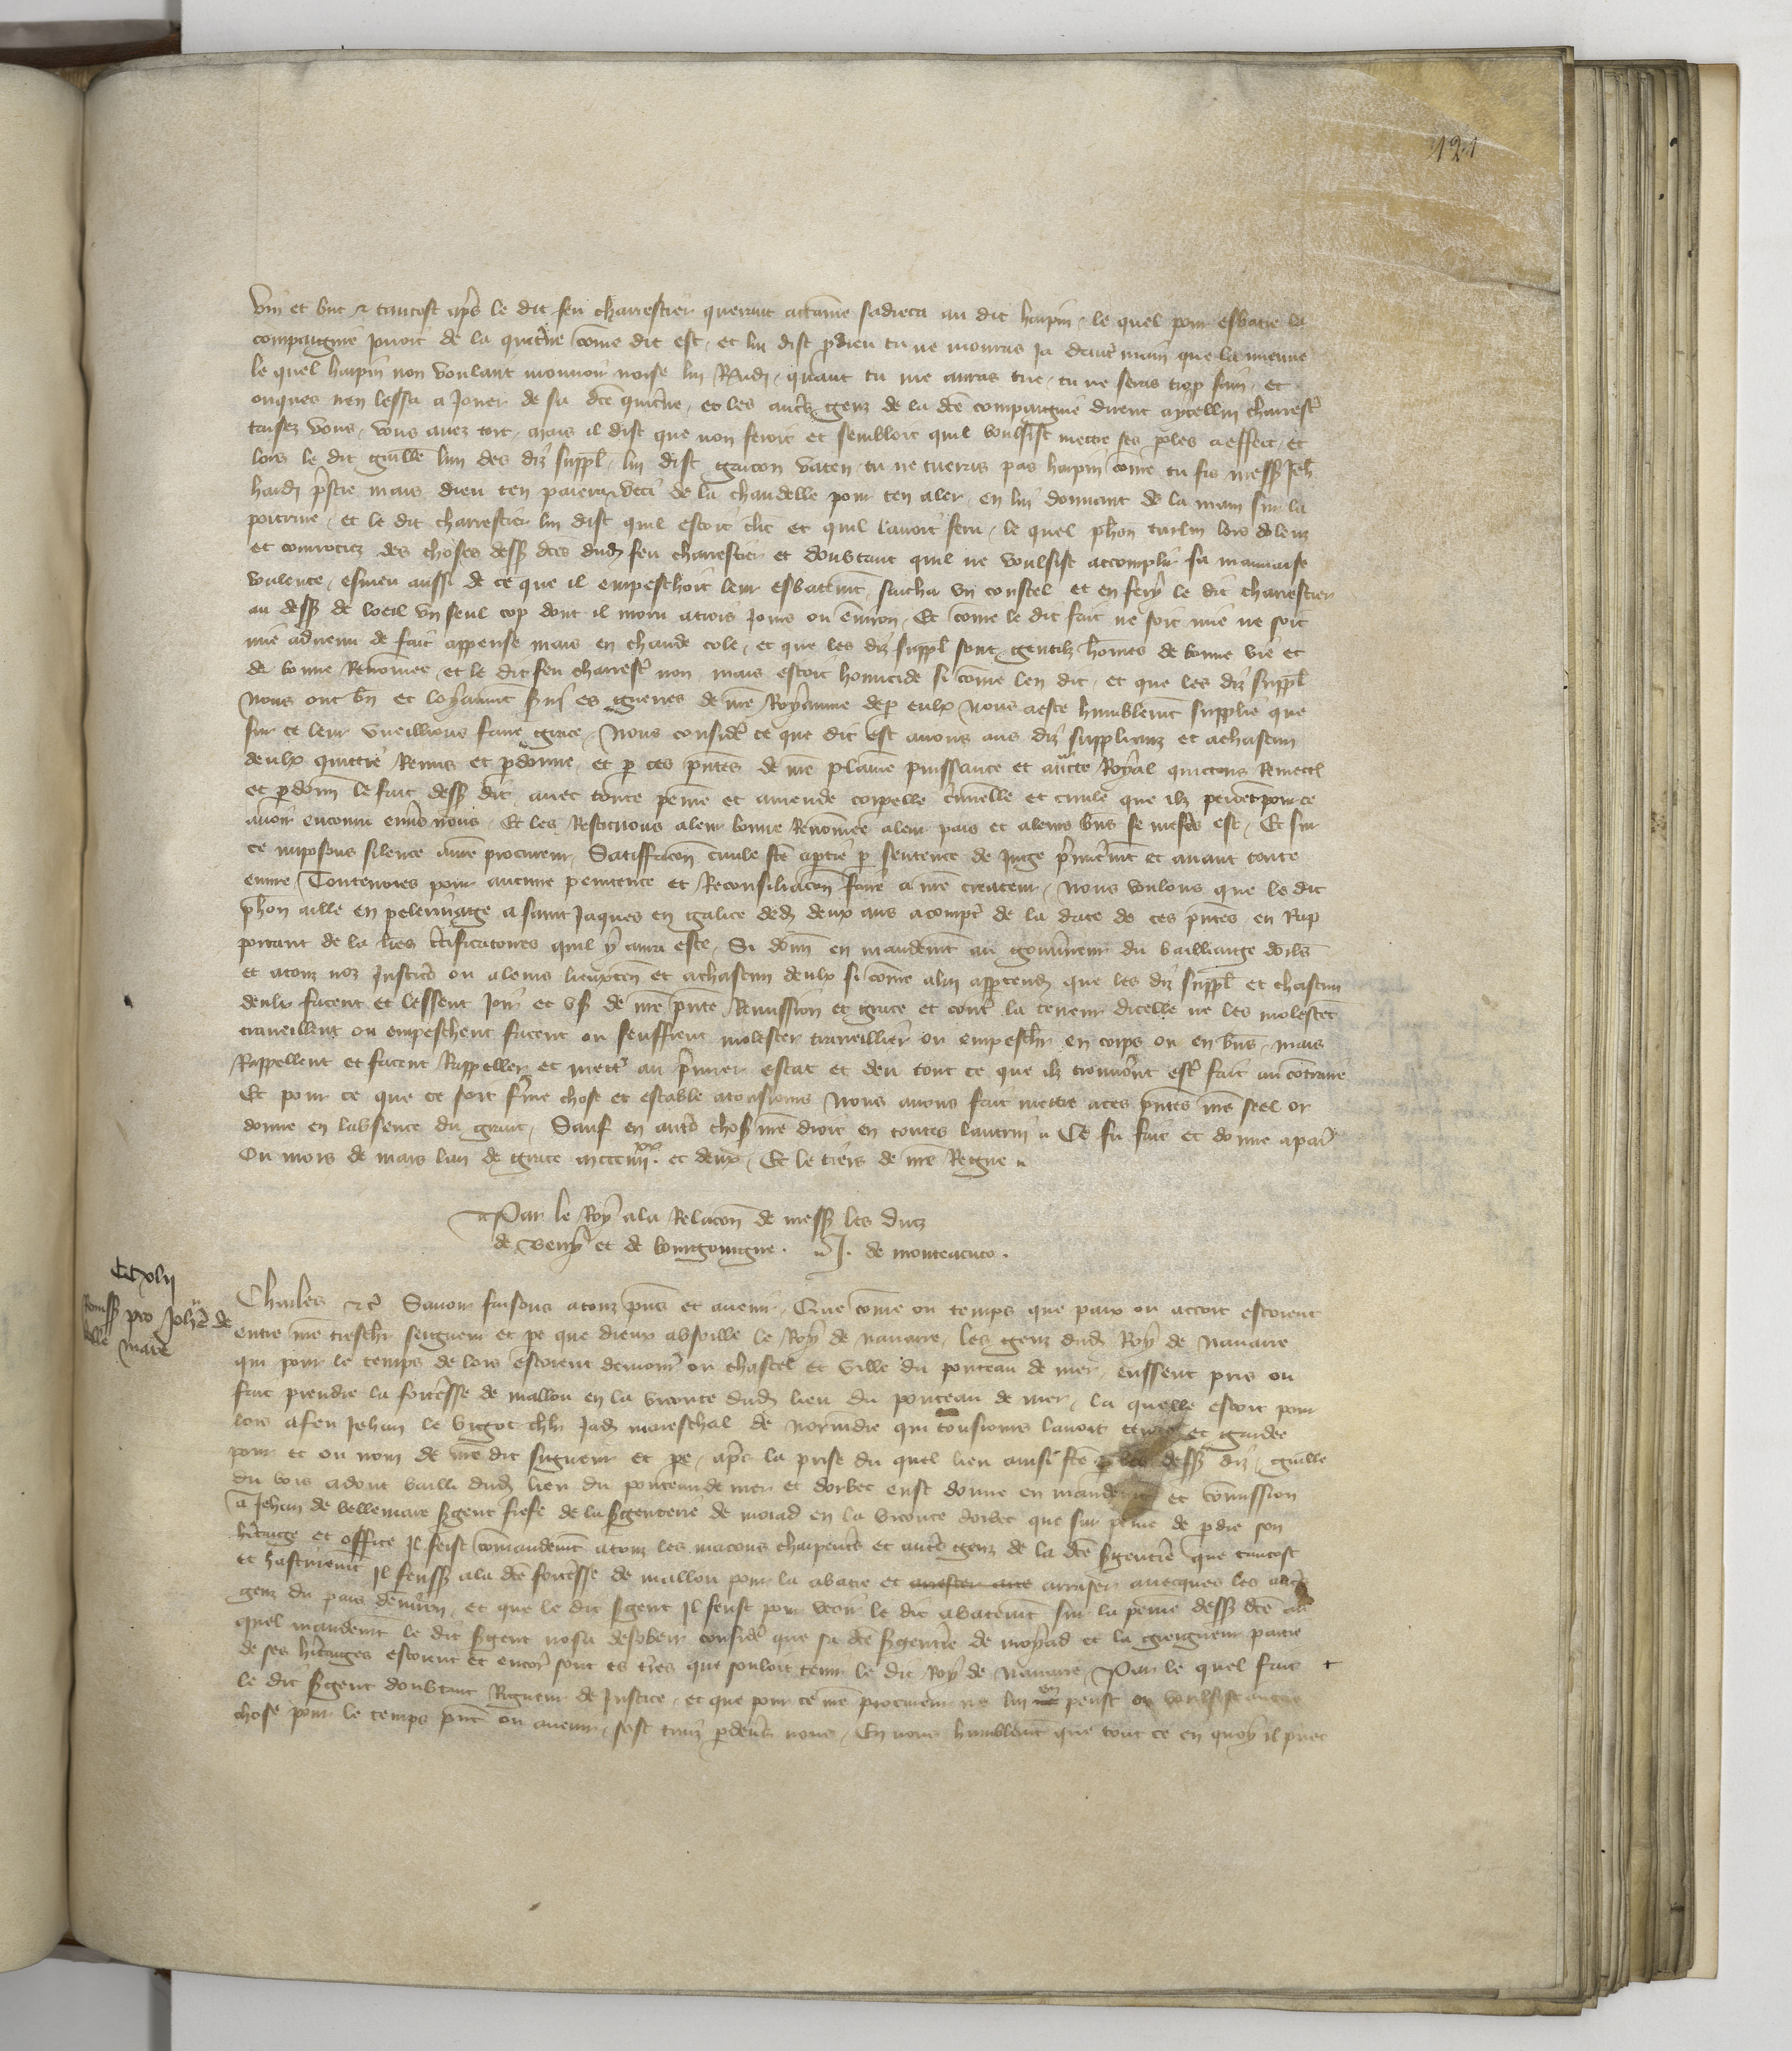 121
vin et but et tantost apres le dit feu charrestier querant actaine sadreca au dit harpin, le quel pour esbatre la
compaignie jouoit de la quiterne come dit est, et lui dist par dieu tu ne mouras ja dautre main que la mienne
le quel harpin non voulant mouvoir noise lui Rendi, quant tu me auras tue, tu ne seras trop seur, et
onques nen lessa a Jouer de sa dce quiterne, et les autres genz de la dce compaignie dirent aycellui charrestr
taisez vous, vous avez tort, mais il dist que non feroit et sembloit quil voulsist mettre ses ples a effect, et
lors le dit guille lun des diz suppl, lui dist garcon vaten, tu ne tueras pas harpin come tu fis mess Jeh
prestre mais dieu ten paiera, veci de la chandelle pour ten aler, en lui donnant de la main sur la
poitrine, et le dit charrestier lui dist quil estoit clerc et quil lavoit feru, le quel phon lors dolenz
et courrociez des choses dess dces dudit feu charrestier et doubtant quil ne voulsist accomplir sa mauvaise
voulente, esmeu aussi de ce que il empeschoit leur esbatemt, sacha un coustel et en fery le dit charrestier
au dess de loeil un seul cop dont il moru a trois Jours ou environ, Et come le dit fait ne soit mie ne soit
mie advenu de fait appense mais en chaude cole, et que les diz suppl sont gentilz homes de bonne vie et
de bonne Renomee, et le dit feu charrestr non, mais estoit homicide si come len dit, et que les diz suppl
nous ont bn et loyaumt servi es guerres de nre Royaume de par eulx nous a este humblemt supplie que
sur ce leur vueillions faire grace, Nous consider ce que dit est avons aus diz supplianz et a chascun
deulx quittie Remis et pardonne, et par ces pntes de nre plaine puissance et aucte Royal quictons Remect
et pardonn le fait dess dit avec toute peine et amende corpelle criminelle et civile que ilz pevent pour ce
avoir encouru envers nous, Et les Restituons a leur bonne Renomee a leur pais et a leurs bns se mestr est, Et sur
ce imposons silence a nre procureur, Satiffacon civile fce a partie par sentence de Juge premieremt et avant toute
euvre, Toutevoies pour aucune penitence et Reconsiliacon faire a nre createur, nous voulons que le dit
phon aille en pelerinage a saint Jaques en galice dedens deux ans a compter de la date de ces pntes en Rap
portant de la lres certificatoires quil y aura este, Si donn en mandemt au gouverneur du bailliage dorls
et a touz noz Justic ou a leurs lieuxten et a chascun deulx si come a lui appartendra que les diz suppl et chascun
deulx facent et lessent Joir et user de nre pnte Remission et grace et contre la teneur dicelle ne les molestent
traveillent ou empeschent facent ou seuffrent molester traveillier ou empeschr en corps ou en bns, mais
Rappellent et facent Rappeller et mettr au premier estat et deu tout ce que ilz trouveront estr fait au contraire
Et pour ce que ce soit ferme chose et estable a tousjours Nous avons fait mettre a ces pntes nre seel or
donne en labsence du grant, Sauf en autres chos nre droit en toutes lautrui Ce fu fait et donne a paris
Ou mois de mars lan de grace mccciiiixx. et deux, Et le tiers de nre Regne
Par le Roy a la Relacon de mess les ducz
de Berry et de bourgoingne. J. de monteacuto.
CCxlij
Remiss pro Johne de
belle mare
Charles etc Savoir faisons a touz pns et avenir, Que come ou temps que paix ou accort estoient
entre nre treschr seigneur et pe que dieux absoille le Roy de navarre, les genz dudit Roy de Navarre
qui pour le temps de lors estoient demour ou chastel et ville du ponteau de mer, eussent pris ou
fait prendre la forteresse de mallou en la viconte dudit lieu du ponteau de mer, la quelle estoit pour
lors a feu Jehan le bigot chlr Jadis mareschal de normdie qui tousjours lavoit tenue et gardee
pour et ou nom de nre dit seigneur et pe, apres la prise du quel lieu ainsi fce par les dess diz, guille
du bois adont bailli dudit lieu du ponteau de mer et dorbec eust donne en mandemt et comission
a Jehan de bellemare sergent fiefe de la sergenterie de moiad en la viconte dorbec que sur peine de perdre son
heritage et office Il feist comandemt a touz les macons charpentrs et autres genz de la dce sergentrie que tantost
et hastivemt Il feuss a la dce forteresse de mallou pour la abatre et arrester arre arraser avecques les autres
genz du pais denviron, et que le dit sergent Il feust pour veoir le dit abatemt sur la peine dess dce au
quel mandemt le dit sergent nosa desobeir consider que sa dce sergentrie de moyad et la greigneur partie
de ses heritages estoient et encor sont es tres que souloit tenir le dit Roy de Navarre, Par le quel fait
le dit sergent doubtant Rigueur de Justice, et que pour ce nre procureur ne lui en peust ou voulsist aucune
chose pour le temps pnt ou avenir, sest traiz pardevers nous, En nous humblemt que tout ce en quoy il puet